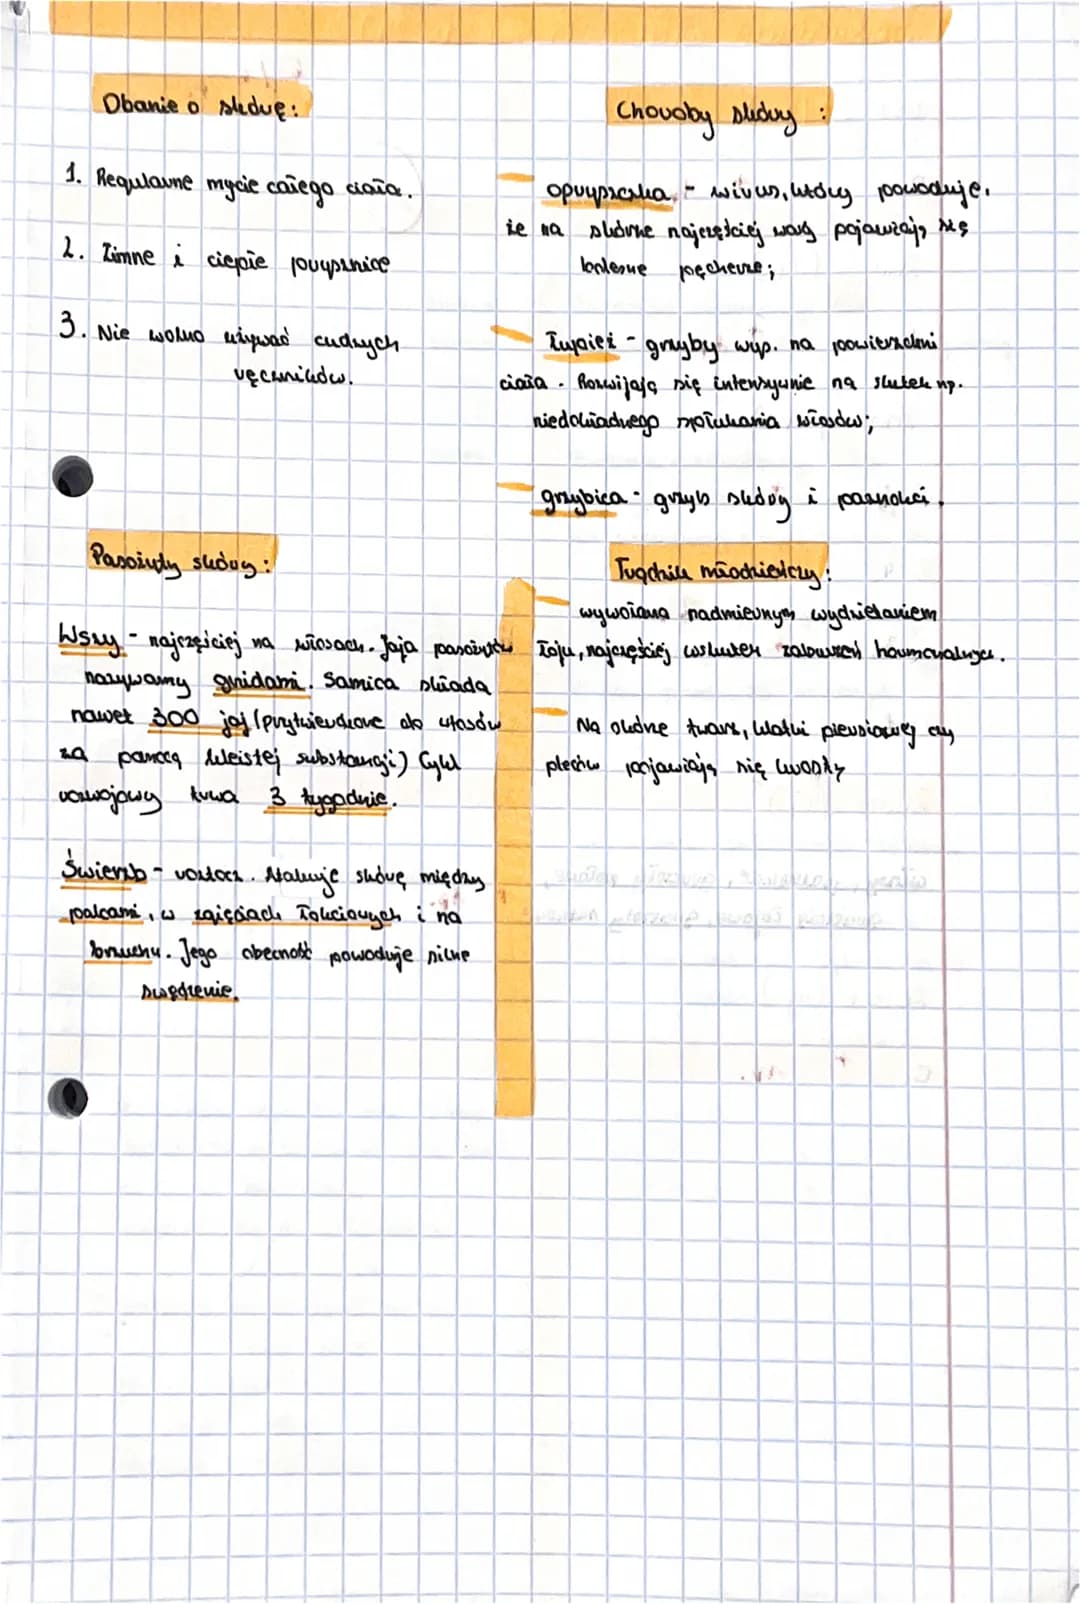 Dbanie o skórę:
1. Regularne mycie całego ciała.
2. Zimne i ciepłe prysznice
3. Nie wolno używać cudzych
ręczników.
Choroby skóry :
opryszczka - wirus, który powoduje,
że na skórze najczęściej warg pojawiają się
bolesne pęcherze;
Łupież - grzyby wyp. na powierzchni
ciała. Rozwijają się intensywnie na skutek np.
niedokładnego spłukania włosów;
grzybica - grzyb skóry i paznokci.
Pasożyty skóry:
Wszy - najczęściej na włosach. Jaja pasożytów
nazywamy gnidami. Samica składa
nawet 300 jaj (przytwierdzone do włosów
za pomocą kleistej substancji) Cykl
rozwojowy trwa 3 tygodnie.
Świerzb - roztocz. Atakuje skórę między
palcami, w zgięciach łokciowych i na
brzuchu. Jego obecność powoduje silne
swędzenie.
Trądzik młodzieńczy:
wywołana nadmiernym wydzielaniem
łoju, najczęściej wskutek zaburzeń hormonalnych.
Na skórze twarz, klatki piersiowej czy
pleców pojawiają się krosty